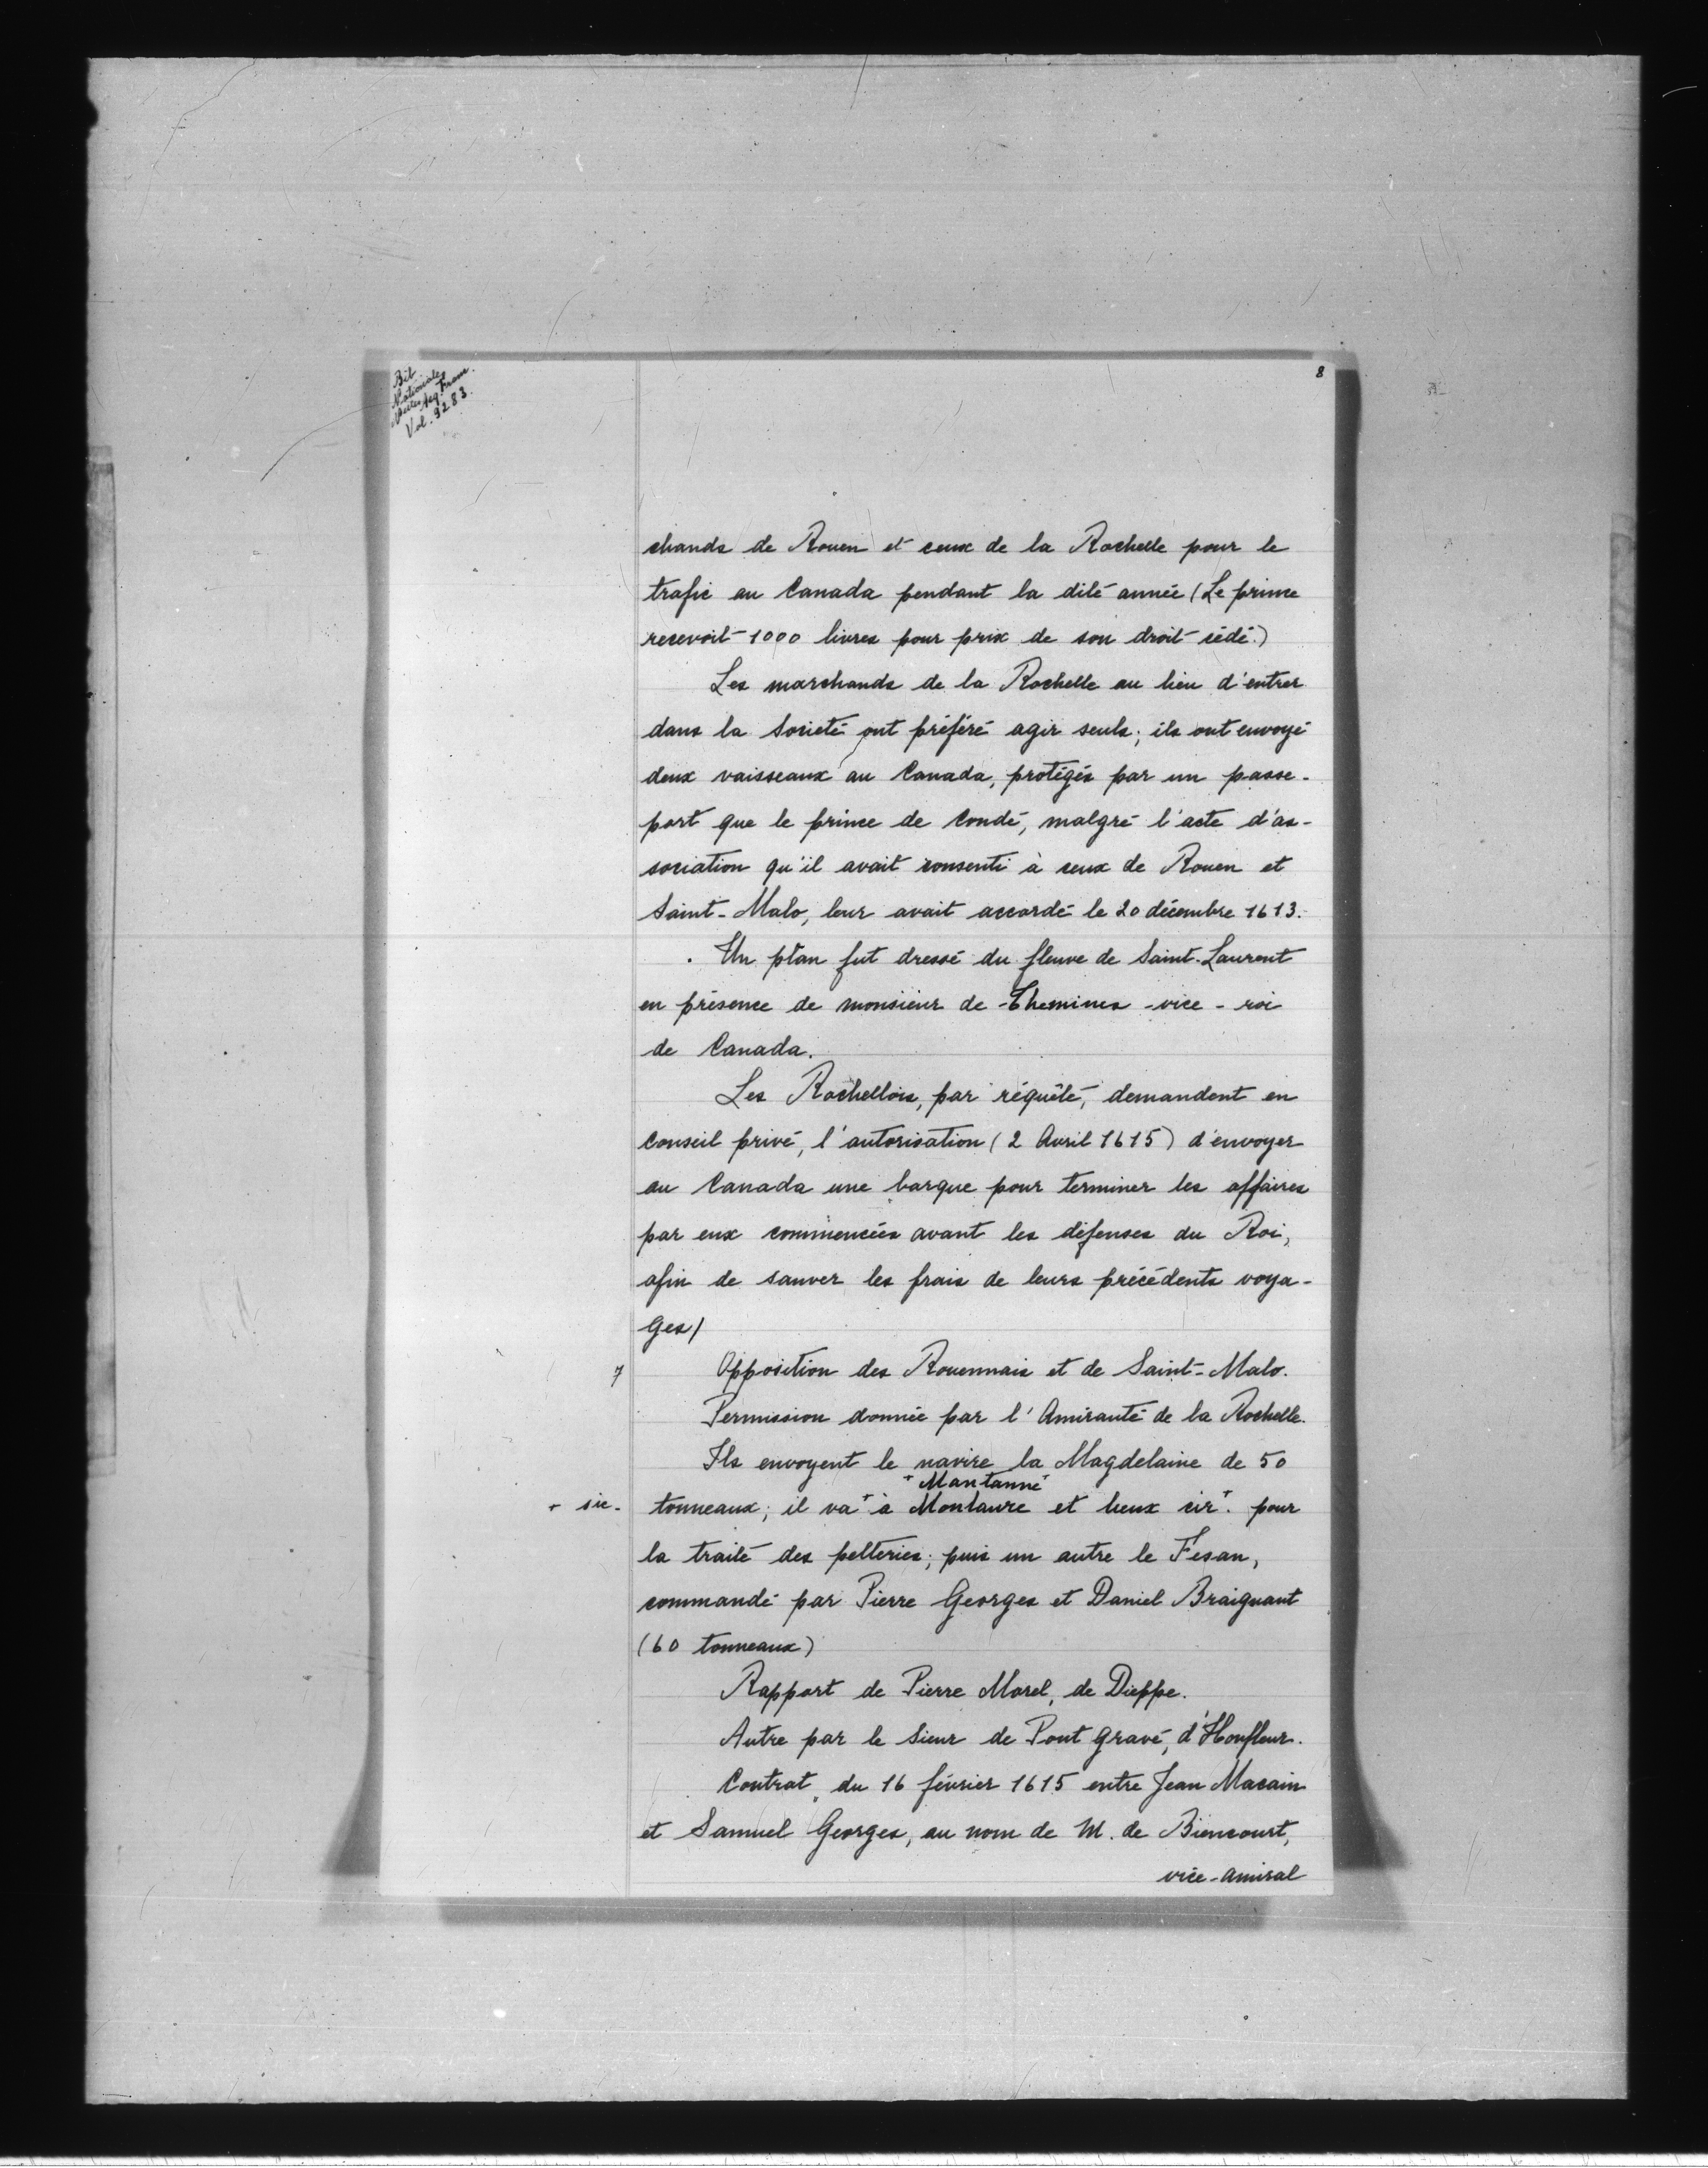 Bib
Nationale
Nelles Acq. Franc.
Vol. 9283.
8
chands de Rouen et ceux de la Rochelle pour le
trafic au Canada pendant la dite année (Le prince
recevoit 1000 livres pour prix de son droit cédé.)
Les marchands de la Rochelle au lieu d'entrer
dans la Société ont préféré agir seuls; ils ont envoyé
deux vaisseaux au Canada, protégés par un passe-
port que le prince de Condé, malgré l'acte d'as-
sociation qu'il avait consenti à ceux de Rouen et
Saint-Malo, leur avait accordé le 20 décembre 1613.
Un plan fut dressé du fleuve de Saint-Laurent
en présence de monsieur de Themines - vice - roi
de Canada.
Les Rochellois, par réquête, demandent en
Conseil privé, l'autorisation (2 Avril 1615) d'envoyer
au Canada une barque pour terminer les affaires
par eux commencées avant les défenses du Roi,
afin de sauver les frais de leurs précédents voya-
ges/
7 Opposition des Rouennais et de Saint-Malo.
Permission donnée par l'Amirauté de la Rochelle.
Ils envoyent le navire la Magdelaine de 50
+ Mantanne +
+ sic - tonneaux; il va + à Montaure et lieux cir +. pour
la traite des pelteries; puis un autre le Fesan,
commandé par Pierre Georges et Daniel Braignant
(60 tonneaux)
Rapport de Pierre Morel, de Dieppe.
Autre par le Sieur de Pont Gravé, d'Honfleur.
Contrat du 16 février 1615 entre Jean Macain
et Samuel Georges, au nom de M. de Biencourt,
vice-amiral